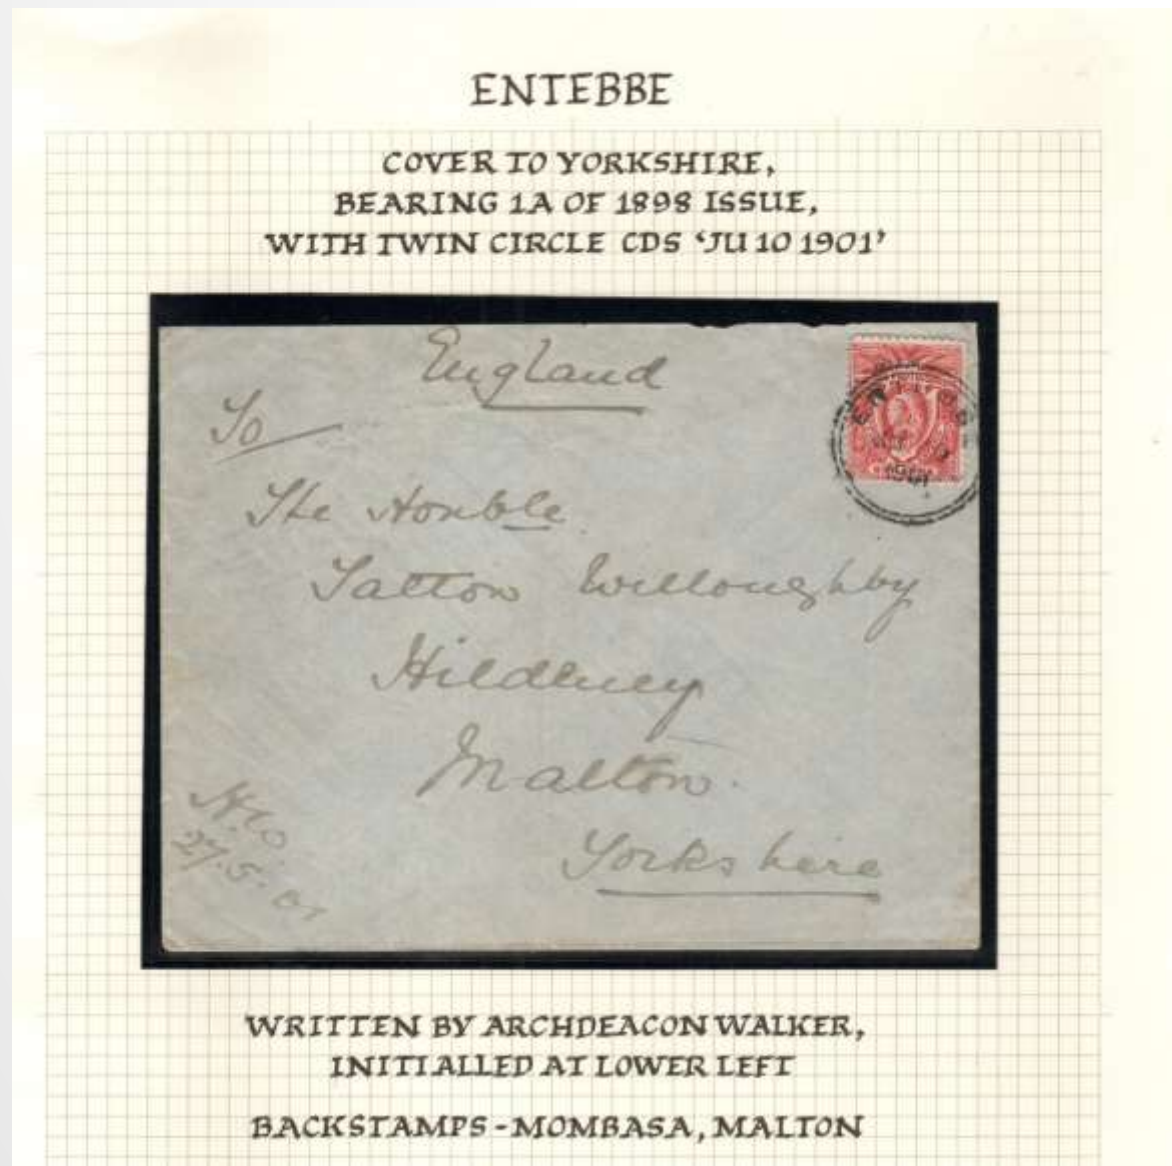 ENTEBBE
COVER TO YORKSHIRE,
BEARING 1A OF 1898 ISSUE,
WITH TWIN CIRCLE CDS 'JU 10 1901'
England
To
The Honble
Tatton Willoughby
Malton.
Yorkshire
27.5.01
1901
WRITTEN BY ARCHDEACON WALKER,
INITIALLED AT LOWER LEFT
BACKSTAMPS - MOMBASA, MALTON